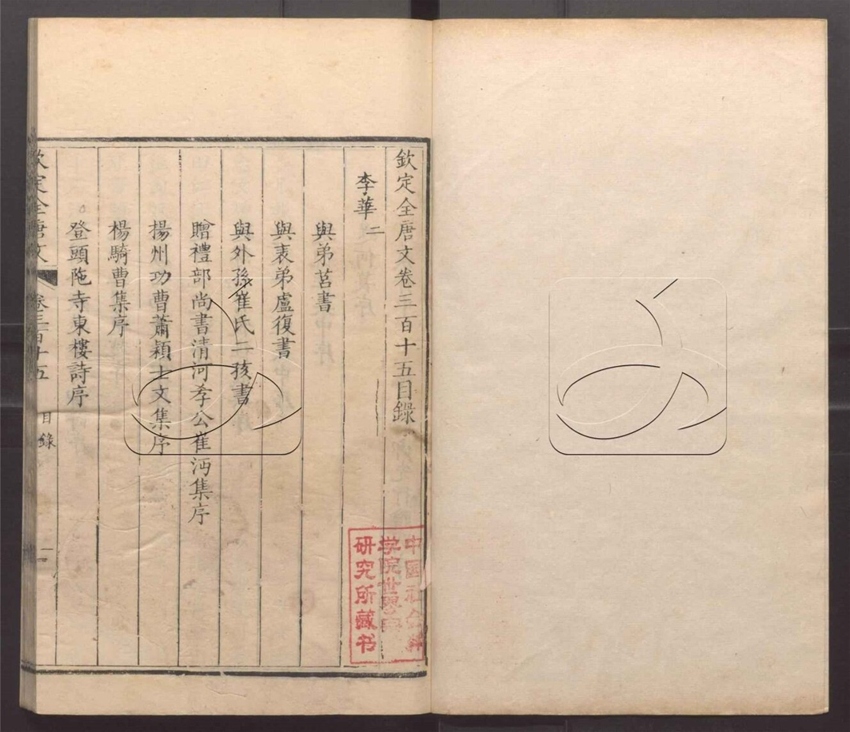 欽定全唐文卷三百十五目錄
李華二
與弟莒書
與表弟盧復書
與外孫崔氏二孩書
贈禮部尚書清河孝公崔沔集序
揚州功曹蕭穎士文集序
楊騎曹集序
登頭陁寺東樓詩序
欽定全唐文 卷三百十五 目錄 一
中国社会科
学院世界
研究所藏书